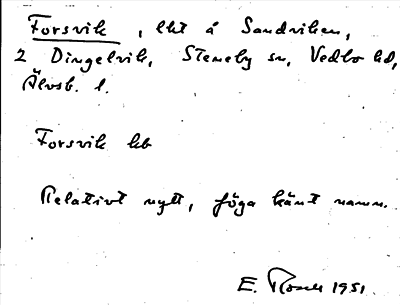 Forsvik, lht å Sandviken,
2 Dingelvik, Steneby sn, Vedbo hd,
Älvsb. l.
Forsvik lht
Relativt nytt, föga känt namn.
E. Rosell 1951